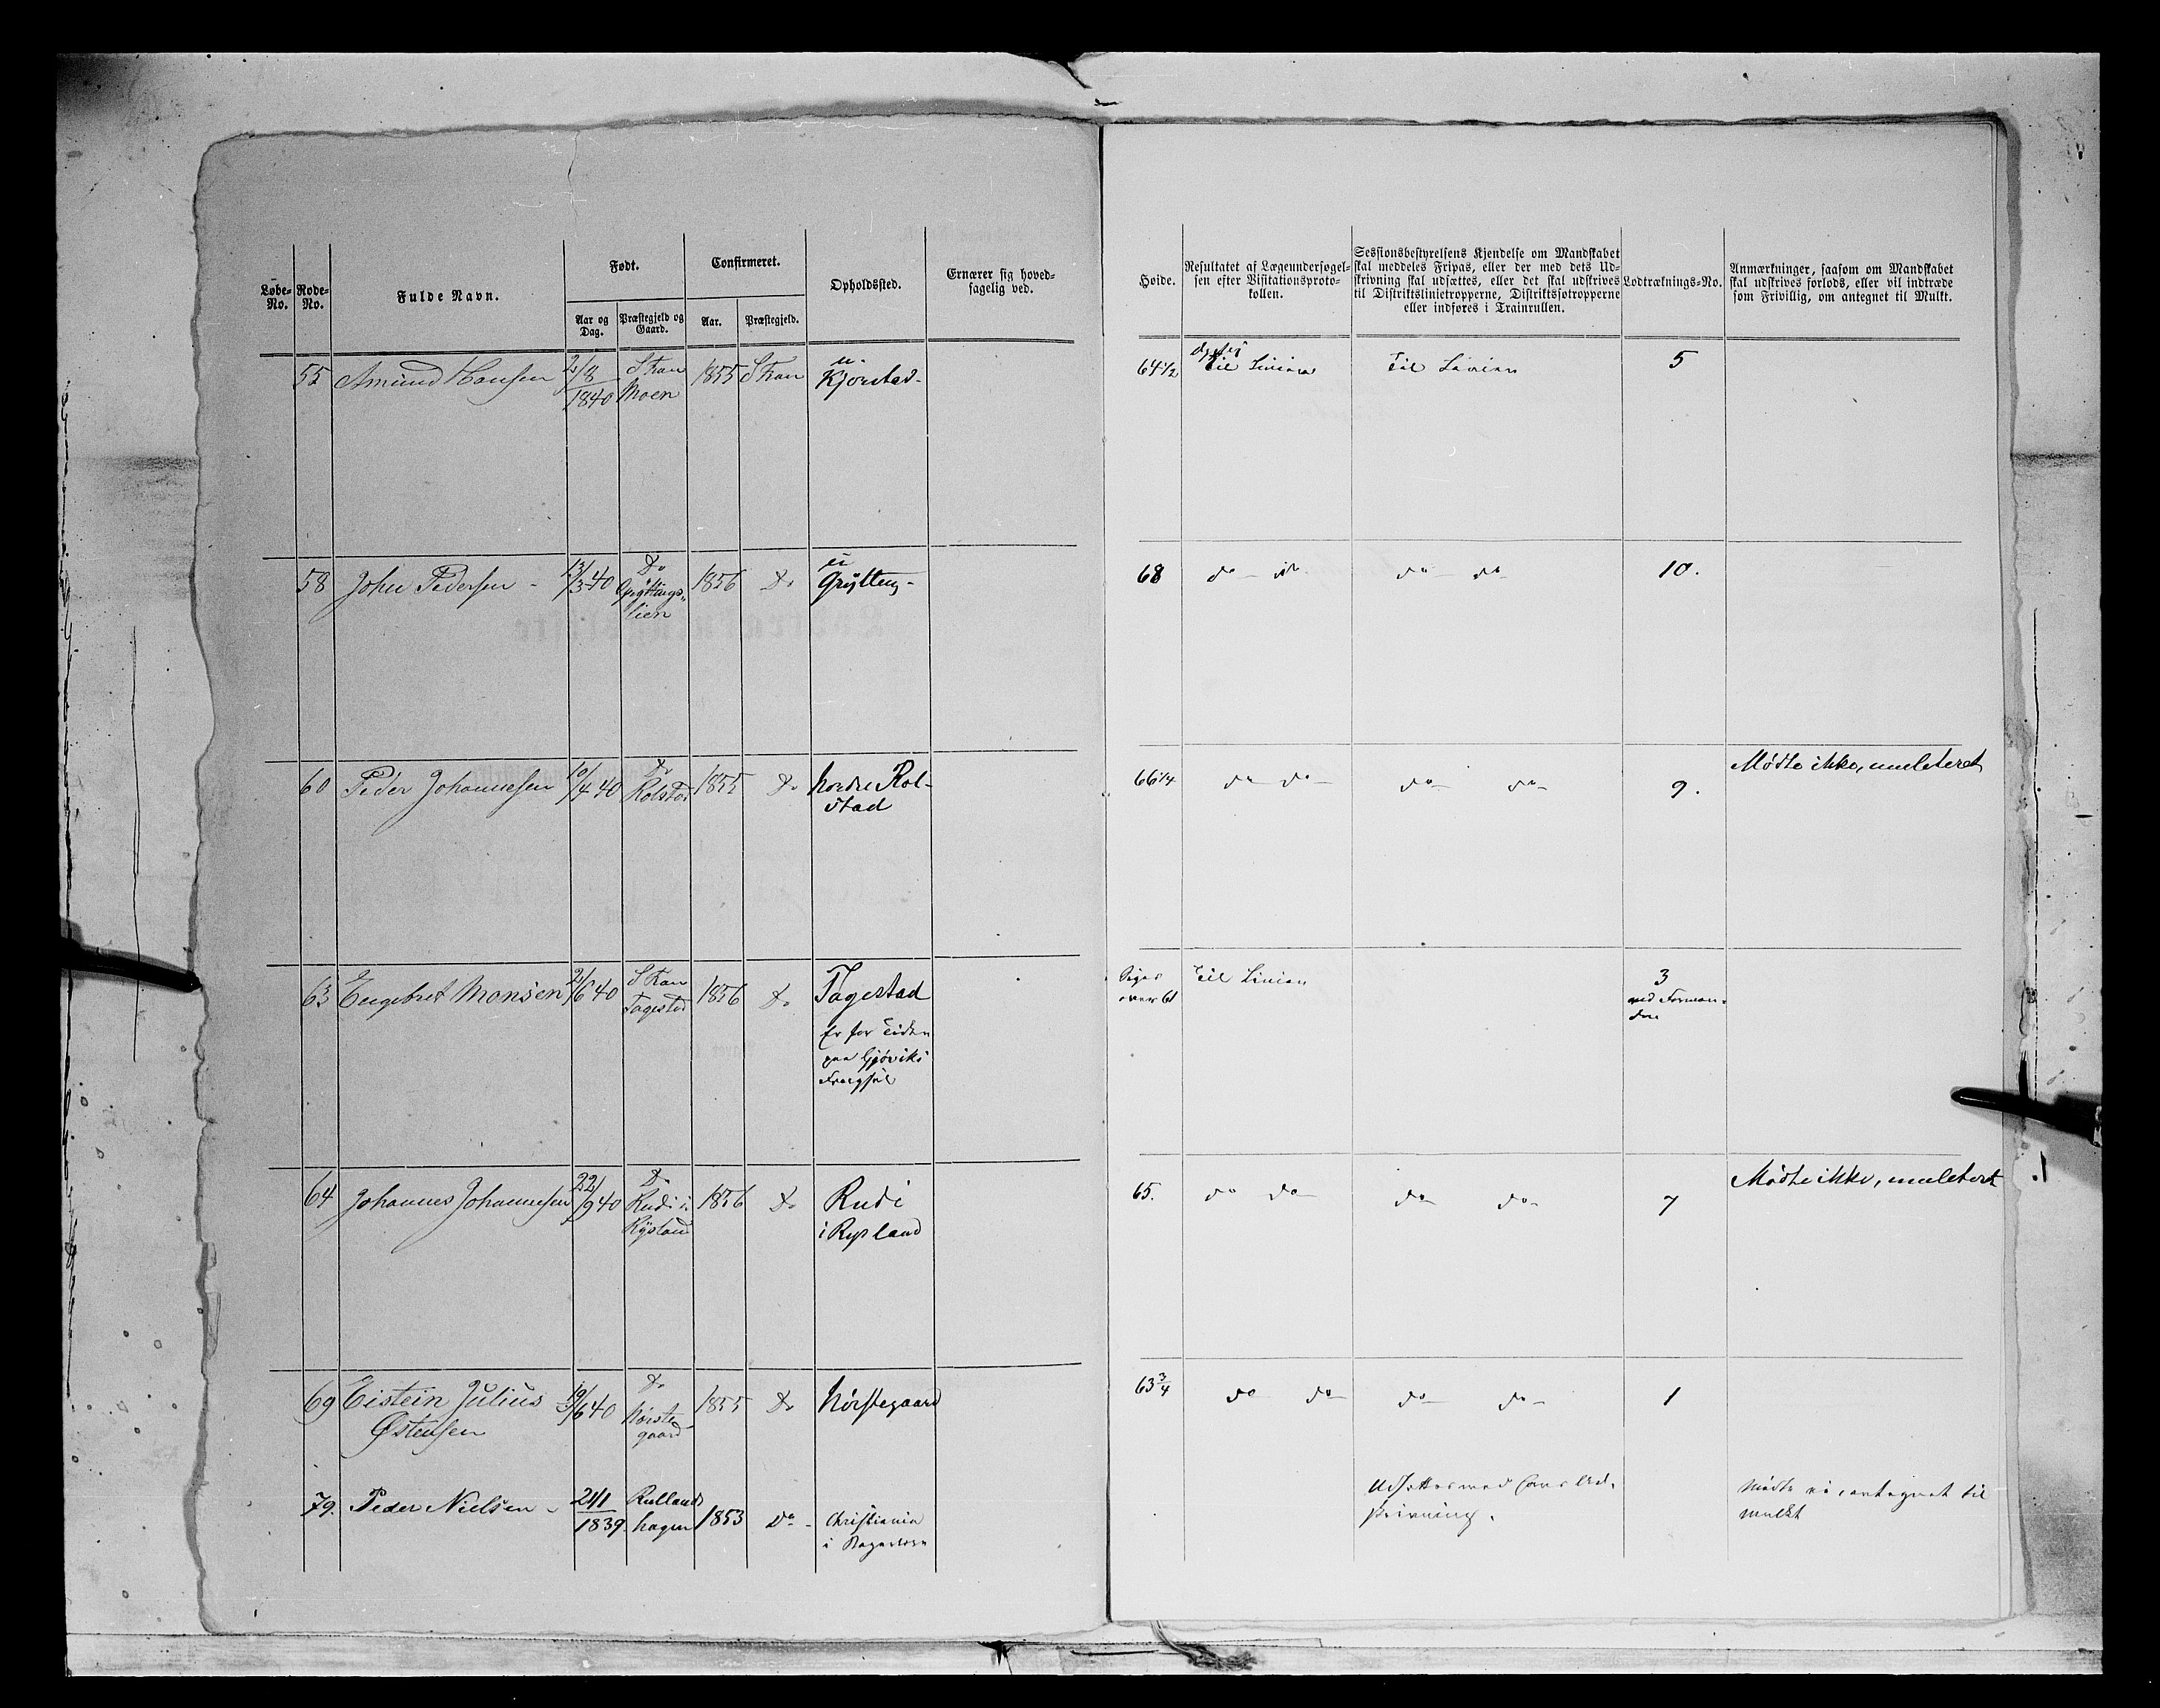 Løbe-No.
Rode-No.
Fulde Navn.
Født.
Aar og Dag.
Præstegjeld og Gaard.
Confirmeret.
Aar.
Præstegjeld.
Opholdssted.
Ernærer sig hoved-
sagelig ved.
Høide.
Resultatet af Lægeundersøgel-
sen efter Visitationsproto-
kollen.
Sessionsbestyrelsens Kjendelse om Mandskabet
skal meddeles Fripas, eller der med dets Ud-
skrivning skal udsættes, eller det skal udskrives
til Distriktslinietropperne, Distriktssøtropperne
eller indføres i Trainrullen.
Lodtræknings-No.
Anmærkninger, saasom om Mandskabet
skal udskrives forlods, eller vil indtræde
som Frivillig, om antegnet til Mulkt.
55 Amund Hansen 2/8 1840 Moen 1855 Kjorstad 64 1/2 Til Linien Til Linien 5
58 John Pedersen - 13/3 40 Do Gryttings-
lien 1856 Do Grytting 68 do do do do 10.
60 Peder Johannesen 10/4 40 Do Rolstad 1855 Do Nordre Rol-
stad 66 1/4 do do do do 9. Mødte ikke, mulcteret
63 Engebret Monsen 2/6 40 Tagestad 1856 Do Tagestad
Er for Tiden
paa Gjøviks
over 61 Til Linien 3
ved Forman-
den
64 Johannes Johannesen 22/9 40 Do Rudi i
Rysland 1856 Do Rudi
i Rysland 65. do do do do 7 Mødte ikke, mulcteret
69 Eistein Julius
Østensen 19/6 40 Do Nørste-
gaard 1855 Do Nørstegaard 63 3/4 do do do do 1
79. Peder Nielsen 24/1 1839. Rullands
hagen 1853 Do - Christiania
i
Udsættes med hans Ud-
skrivning.
Mødte ei, antegnet til
mulkt